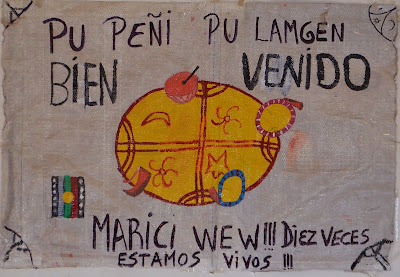 PU PEÑI PU LAMGEN
BIEN VENIDO
MARICI WEW!!! DIEZ VECES
ESTAMOS VIVOS !!!